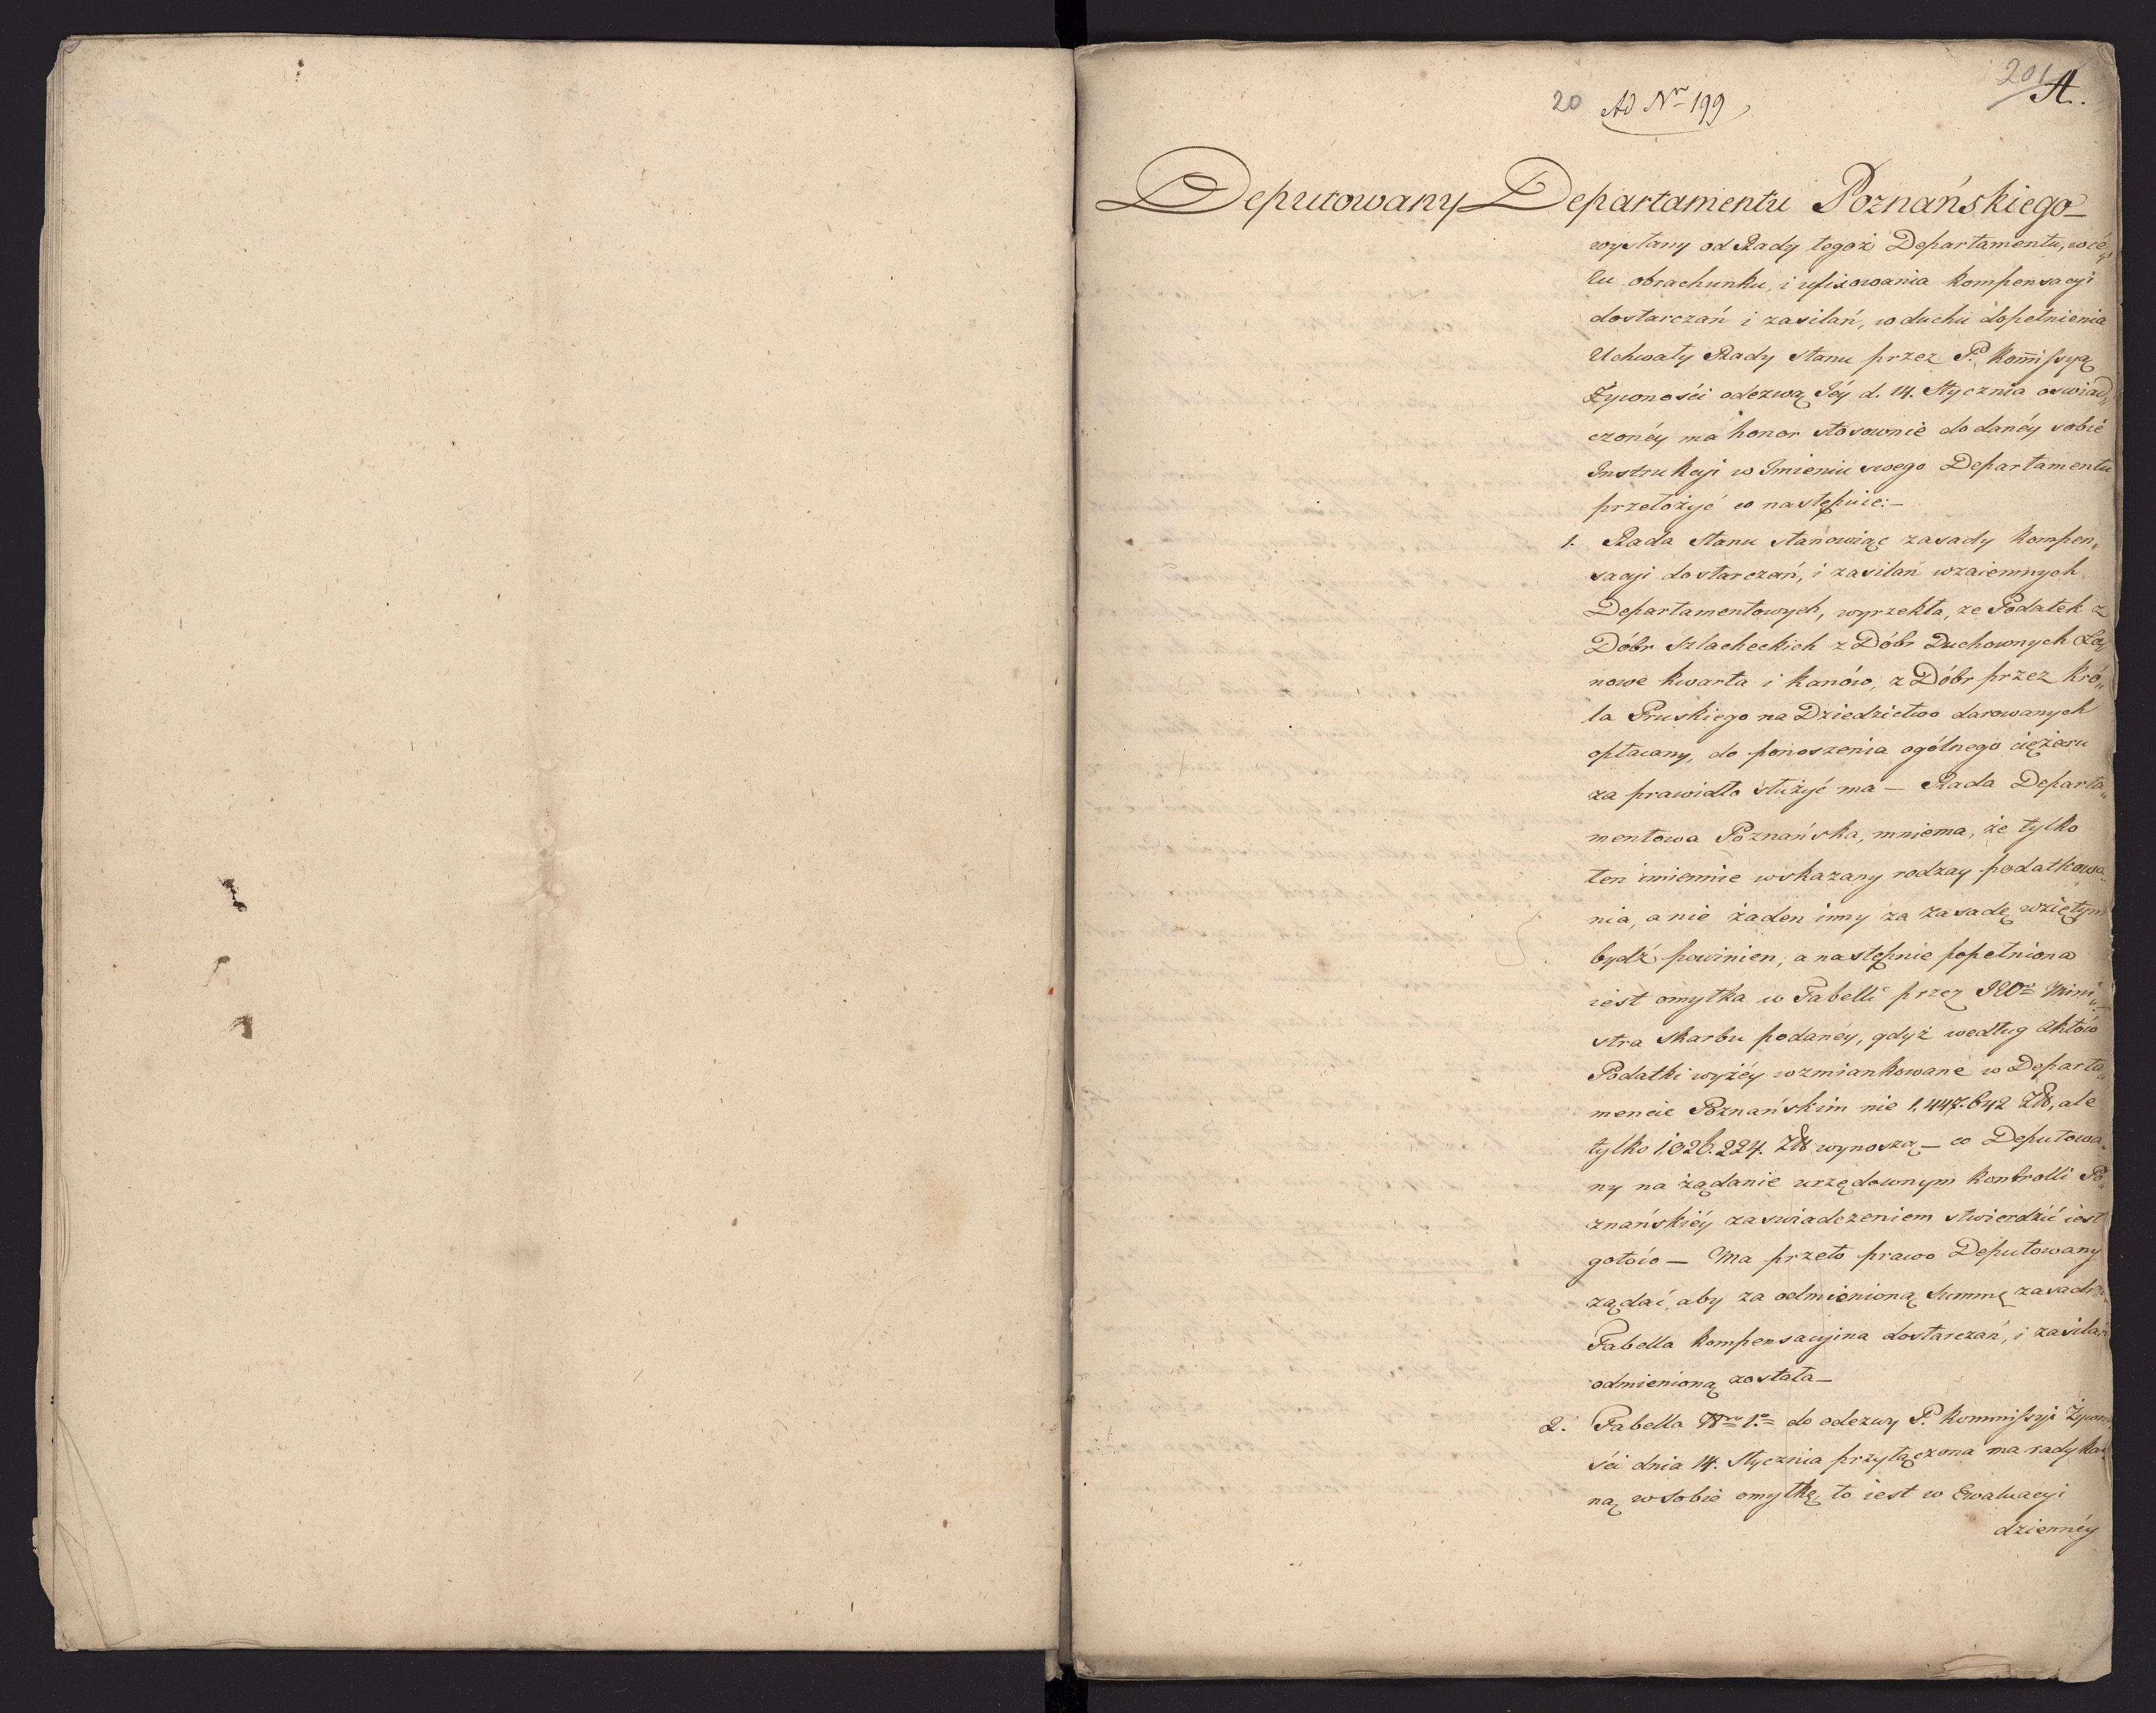 201
A.
20 Ad Nr 199
Deputowany Departamentu Poznańskiego
wysłany od Rady tegoż Departamentu, w ce„
lu obrachunku, i ufixowania kompensacyi
dostarczań i zasilań, w duchu dopełnienia
Uchwały Rady Stanu przez P. Kom̄issyą
Żywności odezwą Jéy d. 14. Stycznia oswiad„
czonéy ma honor stosownie do danéy sobie
Instrukcyi w Imieniu swego Departamentu
przełożyć co następuie:—
1. Rada Stanu stanowiąc zasady kompen„
sacyi dostarczań, i zasilań wzaiemnych
Departamentowych, wyrzekła, ze Podatek z
Dóbr Szlacheckich z Dóbr Duchownych
nowe kwarta i kanów, z Dóbr przez Kró„
la Pruskiego na Dziedzictwo darowanych
opłacany, do ponoszenia ogólnego ciężaru
za prawidło służyć ma — Rada Departa„
mentowa Poznańska, mniema, że tylko
ten imiennie wskazany rodzay podatkowa„
nia, a nie żaden inny za zasadę wziętym
bydź powinien, a następnie popełniona
iest omyłka w Tabelli przez JW Mini„
stra Skarbu podanéy, gdyż według Aktów
Podatki wyżéy wzmiankowane w Departa„
mencie Poznańskim nie 1,447.642 Zł, ale
tylko 1.026.224. Zł wynoszą — co Deputowa„
ny na żądanie urzędownym kontrolli Po„
znańskiéy zaswiadczeniem stwierdzić iest
gotów — Ma przeto prawo Deputowany
ządać, aby za odmienioną Summą zasad
Tabella kompensacyina dostarczań, i zasilań
odmienioną została —
2. Tabella Nro 1o do odezwy P. Kommissyi Żywno„
ści dnia 14. Stycznia przyłączona ma radykal„
ną w sobie omyłkę, to iest w Ewaluacyi
dzienney